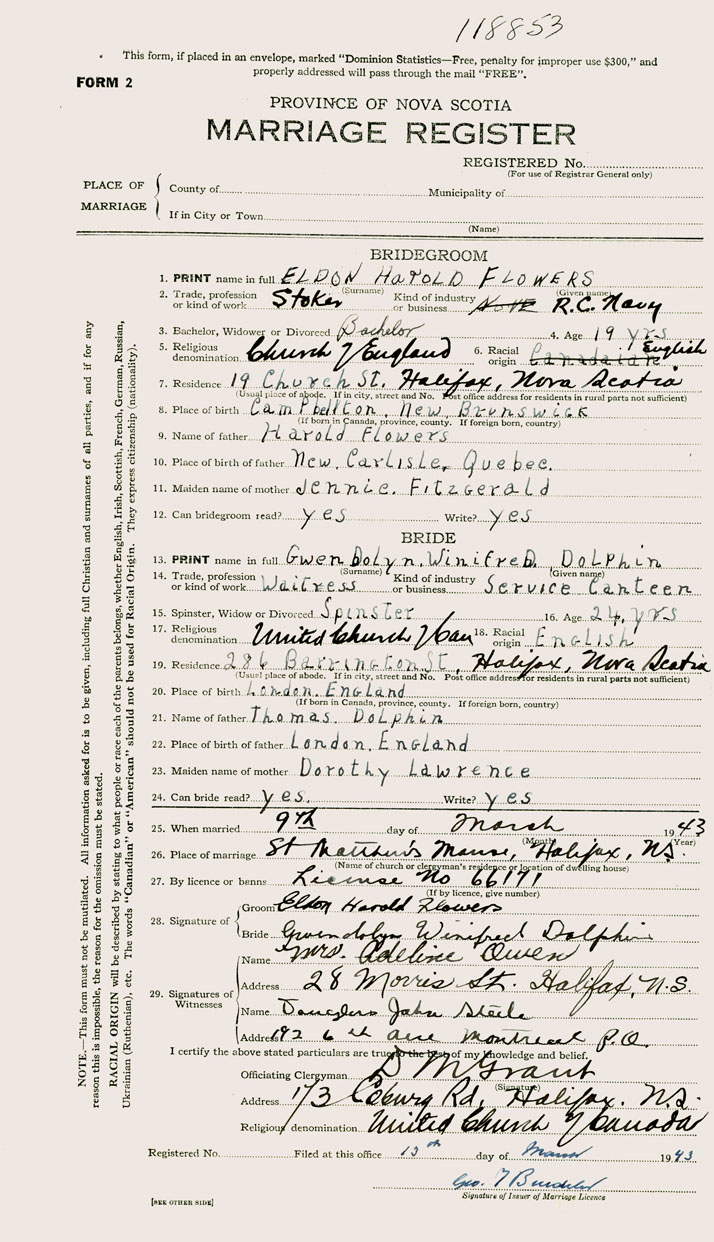 118853
This form, if placed in an envelope, marked "Dominion Statistics—Free, penalty for improper use $300," and
properly addressed will pass through the mail "FREE".
FORM 2
PROVINCE OF NOVA SCOTIA
MARRIAGE REGISTER
REGISTERED No.
(For use of Registrar General only)
PLACE OF MARRIAGE
County of Municipality of
If in City or Town
(Name)
BRIDEGROOM
1. PRINT name in full ELDON HAROLD FLOWERS
(Surname) (Given name)
2. Trade, profession or kind of work Stoker Kind of industry or business R.C. Navy
3. Bachelor, Widower or Divorced Bachelor 4. Age 19 yrs
5. Religious denomination Church of England 6. Racial origin Canadaian English
7. Residence 19 Church St. Halifax, Nova Scotia
(Usual place of abode. If in city, street and No. Post office address for residents in rural parts not sufficient)
8. Place of birth Campbellton, New Brunswick
(If born in Canada, province, county. If foreign born, country)
9. Name of father Harold Flowers
10. Place of birth of father New Carlisle, Quebec.
11. Maiden name of mother Jennie. Fitzgerald
12. Can bridegroom read? yes Write? yes
BRIDE
13. PRINT name in full Gwendolyn. Winifred. DOLPHIN
(Surname) (Given name)
14. Trade, profession or kind of work Waitress Kind of industry or business Service Canteen
15. Spinster, Widow or Divorced Spinster 16. Age 24, yrs
17. Religious denomination United Church of Can 18. Racial origin English
19. Residence 286 Barrington St, Halifax, Nova Scotia
(Usual place of abode. If in city, street and No. Post office address for residents in rural parts not sufficient)
20. Place of birth London. England
(If born in Canada, province, county. If foreign born, country)
21. Name of father Thomas. Dolphin
22. Place of birth of father London. England
23. Maiden name of mother Dorothy Lawrence
24. Can bride read? yes. Write? yes
25. When married 9th day of March 1943
(Month) (Year)
26. Place of marriage St Matthew's Manse, Halifax, N.S.
(Name of church or clergyman's residence or location of dwelling house)
27. By licence or banns License No 66171
(If by licence, give number)
28. Signature of
Groom Eldon Harold Flowers
Bride Gwendolyn Winifred Dolphin
29. Signatures of Witnesses
Name Mrs. Adeline Owen
Address 28 Morris St. Halifax, N.S.
Name Douglas John
Address 192 6th Ave Montreal P.Q.
I certify the above stated particulars are true to the best of my knowledge and belief.
Officiating Clergyman D M Grant
(Signature)
Address 173 Coburg Rd, Halifax. N.S.
Religious denomination United Church of Canada
Registered No. Filed at this office 13th day of March 1943
Geo.
Signature of Issuer of Marriage Licence
[SEE OTHER SIDE]
NOTE.—This form must not be mutilated. All information asked for is to be given, including full Christian and surnames of all parties, and if for any
reason this is impossible, the reason for the omission must be stated.
RACIAL ORIGIN will be described by stating to what people or race each of the parents belongs, whether English, Irish, Scottish, French, German, Russian,
Ukrainian (Ruthenian), etc. The words "Canadian" or "American" should not be used for Racial Origin. They express citizenship (nationality).